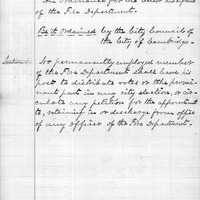 An Ordinance for the better discipline
of the Fire Department.
Be it Ordained by the City Council of
the City of Cambridge.
Section 1. No permanently employed member
of the Fire Department shall leave his
post to distribute votes or take promi-
nent part in any city election, or cir-
culate any petition for the appointment
to, retaining in or discharge from office
of any officer of the Fire Department.